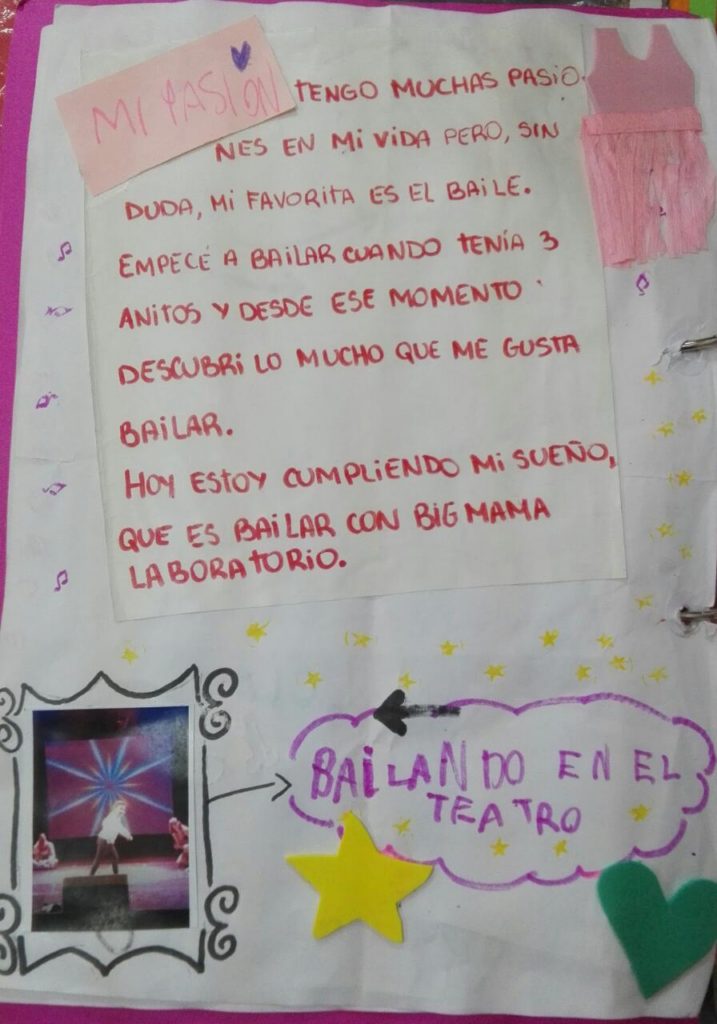 MI PASIÓN
TENGO MUCHAS PASIO-
NES EN MI VIDA PERO, SIN
DUDA, MI FAVORITA ES EL BAILE.
EMPECÉ A BAILAR CUANDO TENÍA 3
AÑITOS Y DESDE ESE MOMENTO
DESCUBRI LO MUCHO QUE ME GUSTA
BAILAR.
HOY ESTOY CUMPLIENDO MI SUEÑO,
QUE ES BAILAR CON BIG MAMA
LABORATORIO.
BAILANDO EN EL
TEATRO